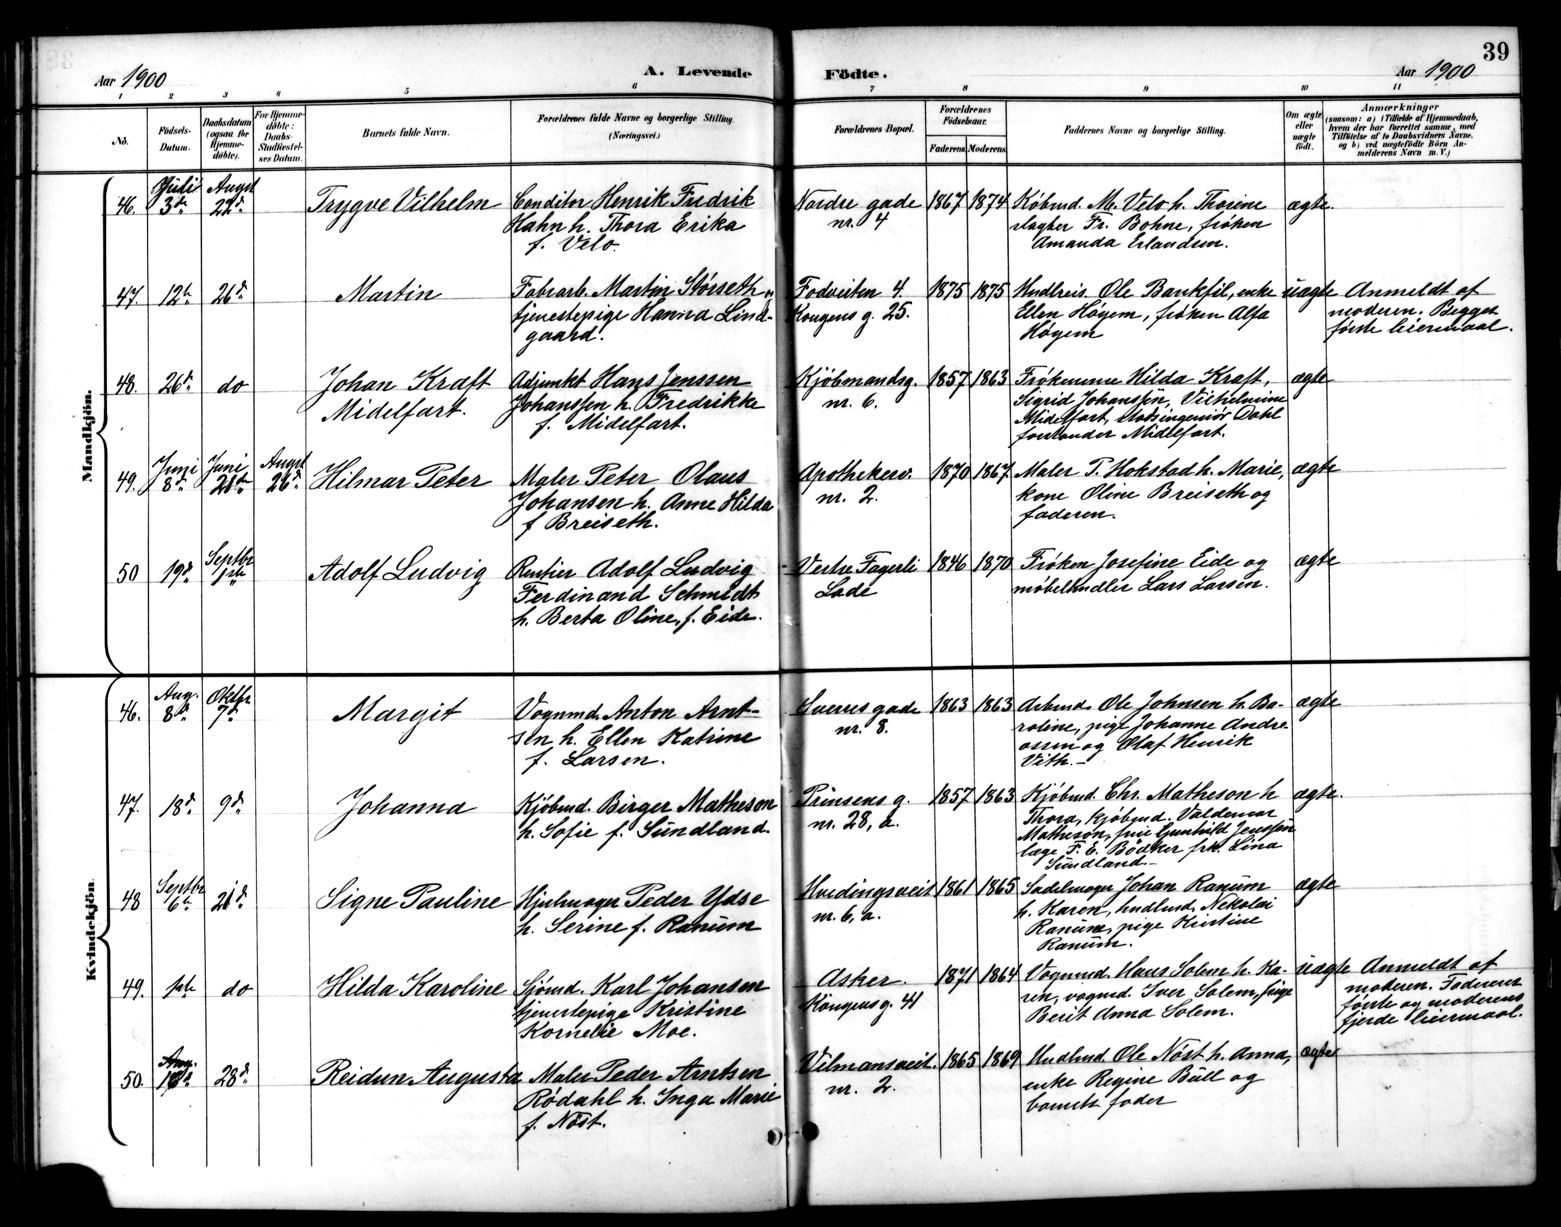 Aar 1900
A. Levende
Fødte.
Aar 1900
39
1 2 3 4 5 6 7 8 9 10 11
No.
Fødsels-
Datum.
Daabsdatum
(ogsaa for
Hjemme-
døbte).
For Hjemme-
døbte:
Daabs-
Stadfæstel-
ses Datum.
Barnets fulde Navn.
Forældrenes fulde Navne og borgerlige Stilling
(Næringsvei.)
Forældrenes Bopæl.
Forældrenes
Fødselsaar.
Faderens. Moderens.
Faddernes Navne og borgerlige Stilling.
Om ægte
eller
uægte
født.
Anmærkninger
(saasom: a) i Tilfælde af Hjemmedaab,
hvem der har forrettet samme, med
Tilføielse af to Daabsvidners Navne.
og b) ved uægtefødte Børn An-
melderens Navn m. V.)
Mandkjön.
46. Juli 3de Augst 22de Trygve Vilhelm
Conditor Henrik Fredrik
Hahn h. Thora Erika
f. Velo.
Nordre gade
nr. 4
1867 1874
Kóbmd. M. Velo h. Thorine
slagter Fr. Bohne, fróken
Amanda Erlandsen.
ægte.
47. 12te 26de Martin
Fabrarb. Martin Störseth,
tjenestepige Hanna Lind-
gaard.
Fodveiten 4.
Kongens g. 25.
1875 1875
Hndlreis. Ole Bankfil, enke
Ellen Högem, fróken Alfa
Högem
uægte
Anmeldt af
moderen. Begges
förste leiermaal.
48. 26de do Johan Kraft
Midelfart.
Adjunkt Hans Jenssen
Johanssen h. Fredrikke
f. Midelfart.
Kjöbmandsg.
nr. 6.
1857 1863
Frókenerne Hilda Kraft,
Sigrid Johanssen, Vilhelmine
Midelfart, stadsingeniör Dahl
forstander Midelfart.
ægte
49. Juni 8de Juni 21de Augst 26de Hilmar Peter
Maler Peter Olaus
Johansen h. Anne Hilda
f Breiseth.
Apothekerv.
nr. 2.
1870 1867.
Maler P. Hokstad h. Marie,
kone Oline Breiseth og
faderen.
ægte
50 19de Septbr 1ste Adolf Ludvig
Rentier Adolf Ludvig
Ferdinand Schmidt
h. Berta Oline, f. Eide.
Vestre Fagerli
Lade
1846 1870
Fróken Josefine Eide og
möbelhandler Lars Larsen.
ægte
Kvindekjön.
46. Aug. 8de Oktbr 7de Margit
Vognmd. Anton Arnt-
sen h. Ellen Katrine
f. Larsen.
Sverres gade
nr. 8.
1863 1863
Arbmd. Ole Johnsen h Ba-
roline, pige Johanne Andre
assen og Olaf Henrik
Vith.
ægte
47. 18de 9de Johanna
Kjöbmd. Birger Matheson
h. Sofie f. Sundland.
Prinsens g.
nr. 28, a.
1857 1863
Kjöbmd. Chr. Matheson h
Thora, kjöbmd. Valdemar
Matheson, frue Gunhild Jenssen
læge F. E. Bödker frk. Lina
Sundland.
ægte.
48 Septbr 6te 21de Signe Pauline
Hjulmager Peder Ydse
h. Serine f. Ranum
Hvedingsveit
nr. 6, a.
1861 1865
Sadelmager Johan Ranum
h. Karen, hndlmd. Nekolai
Ranum, pige Kristine
Ranum.
ægte
49. 1ste do Hilda Karoline
Sjömd. Karl Johansen
tjenestepige Kristine
Kornelie Moe.
Asker
Kongens g. 41
1871 1864
Vognmd. Hans Solem h. Ka-
ren, vognmd. Iver Solem, pige
Berit Anna Solem.
uægte
Anmeldt af
moderen. Faderens
förste og moderens
fjerde leiermaal.
50. Aug. 28de Reidun Augusta
Maler Peder Arntsen
Rödahl h. Inga Marie
f. Nöst.
Vilmansveit.
nr. 2.
1865 1869
Hndlmd. Ole Nöst h. Anna,
enke Regine Bull og
barnets fader
ægte